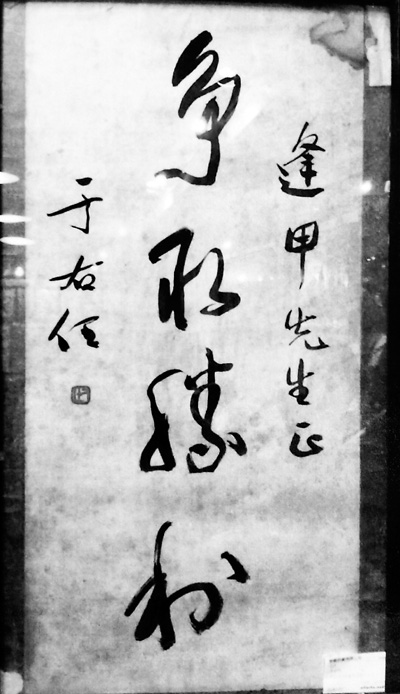 逢甲先生正
争取勝利
于右任